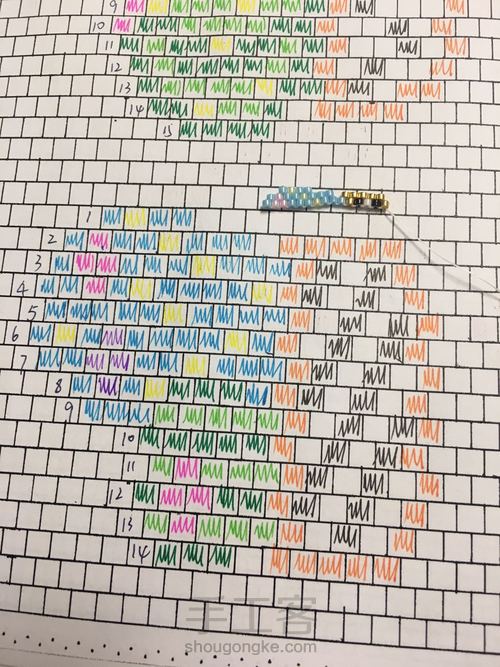 9
10
11
12
13
14
15
1
2
3
4
5
6
7
8
9
10
11
12
13
14
手工客
shougongke.com